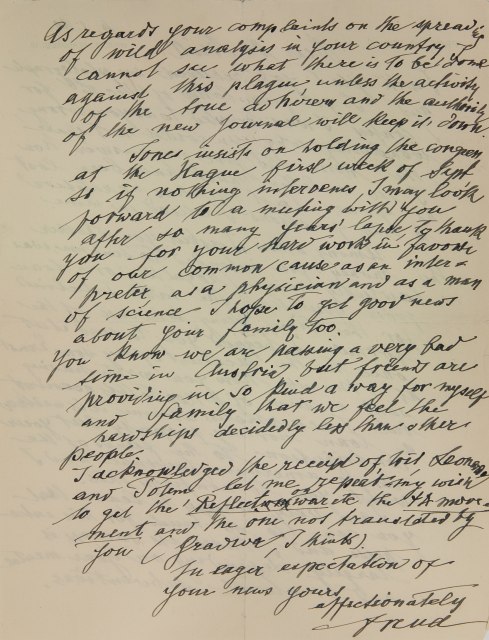 As regards your complaints on the spreading
of wild analysis in your country I
cannot see what there is to be done
against this plague unless the activity
of the true adhérers and the authority
of the new Journal will keep it down.
Jones insists on holding the congress
at the Hague first week of Sept
so if nothing intervenes I may look
forward to a meeting with you
after so many years' lapse to thank
you for your hard work in favour
of our common cause as an inter=
preter, as a physician and as a man
of science. I hope to get good news
about your family too.
You know we are passing a very bad
time in Austria but friends are
providing in so kind a way for myself
and family that we feel the
hardships decidedly less than other
people.
I acknowledged the receipt of Leonardo
and Totem let me repeat my wish
to get the Reflect. on war etc the ΨA move=
ment and the one not translated by
you (Gradiva, I think).
In eager expectation of
your news yours
affectionately
Freud